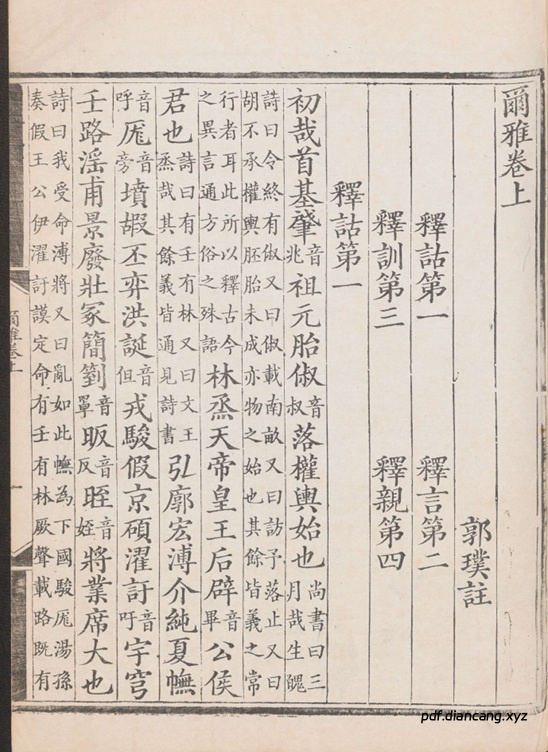 爾雅卷上
郭璞註
釋詁第一 釋言第二
釋訓第三 釋親第四
釋詁第一
初哉首基肇音兆祖元胎俶音叔落權輿始也尚書曰三月哉生魄
詩曰令終有俶又曰俶載南畝又曰訪予落止又曰
胡不承權輿胚胎未成亦物之始也其餘皆義之常
行者耳此所以釋古今之異言通方俗之殊語林烝天帝皇王后辟音畢公侯
君也詩曰有壬有林又曰文王烝哉其餘義皆通見詩書弘廓宏溥介純夏幠
音呼厖音旁墳嘏丕弈洪誕音但戎駿假京碩濯訏音吁宇穹
壬路淫甫景廢壯冢簡箌音罩昄音反晊音姪將業席大也
詩曰我受命溥將又曰亂如此幠為下國駿厖湯孫
奏假王公伊濯訏謨定命有壬有林厥聲載路既有
爾雅卷上
一
pdf.diancang.xyz